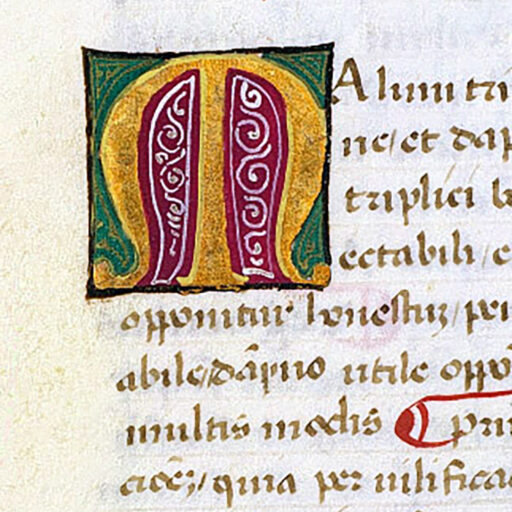 MAlum tri
ne/et dap
triplici b
ectabili/e
opponitur honestuz/per
abile/dāpno utile oppo
multis modis ¶ pri
quia per uilifica